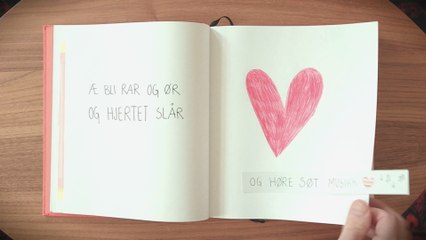 Æ BLI RAR OG ØR
OG HJERTET SLÅR
OG HØRE SØT MUSIKK